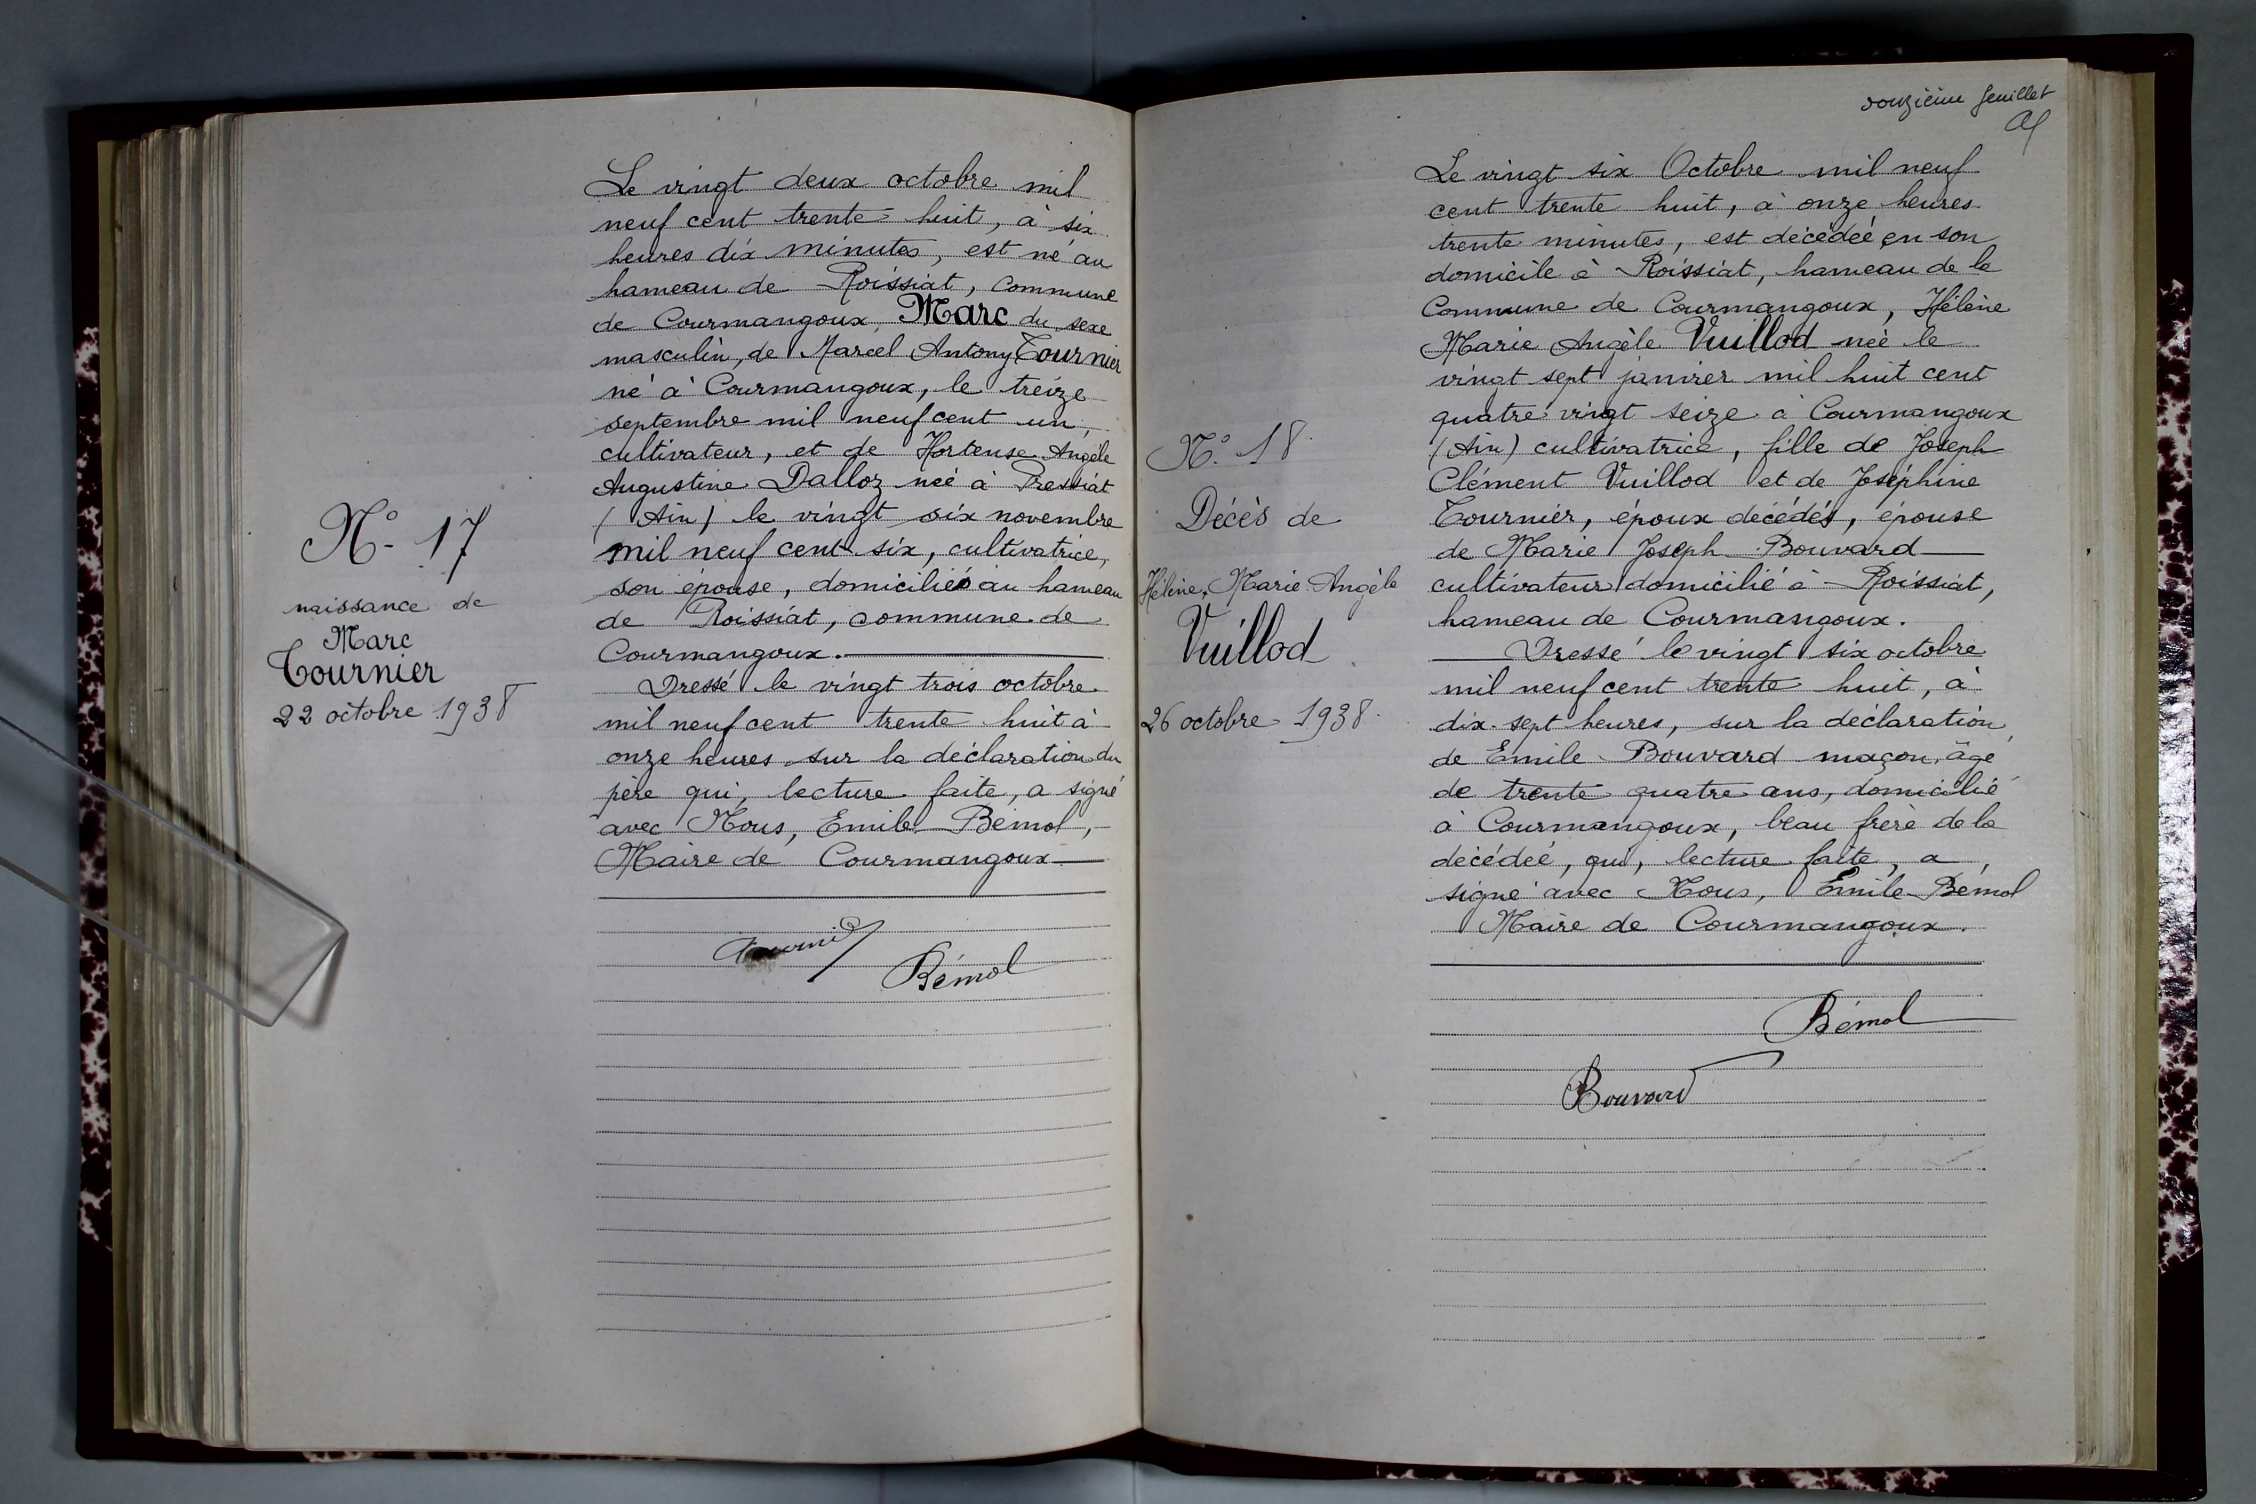 N° 17
naissance de
Marc
Tournier
22 octobre 1938
Le vingt deux octobre mil
neuf cent trente huit, à six
heures dix minutes, est né au
hameau de Roissiat, commune
de Courmangoux, Marc du sexe
masculin, de Marcel Antony Tournier
né à Courmangoux, le treize
septembre mil neuf cent un,
cultivateur, et de Hortense Angèle
Augustine Dalloz née à Pressiat
(Ain) le vingt six novembre
mil neuf cent six, cultivatrice,
son épouse, domiciliés au hameau
de Roissiat, commune de
Courmangoux.
Dressé le vingt trois octobre
mil neuf cent trente huit à
onze heures sur la déclaration du
père qui, lecture faite, a signé
avec Nous, Emile Bémol,
Maire de Courmangoux
Tournier
Bémol
douzième feuillet
N° 18
Décès de
Hélène, Marie Angèle
Vuillod
26 octobre 1938
Le vingt six Octobre mil neuf
cent trente huit, à onze heures
trente minutes, est décédée en son
domicile à Roissiat, hameau de la
Commune de Courmangoux, Hélène
Marie Angèle Vuillod née le
vingt sept janvier mil huit cent
quatre vingt seize à Courmangoux
(Ain) cultivatrice, fille de Joseph
Clément Vuillod et de Joséphine
Tournier, époux décédés, épouse
de Marie Joseph Bouvard
cultivateur domicilié à Roissiat,
hameau de Courmangoux.
Dressé le vingt six octobre
mil neuf cent trente huit, à
dix-sept heures, sur la déclaration
de Emile Bouvard maçon, âgé
de trente quatre ans, domicilié
à Courmangoux, beau frère de la
décédée, qui, lecture faite, a
signé avec Nous, Emile Bémol
Maire de Courmangoux.
Bémol
Bouvard